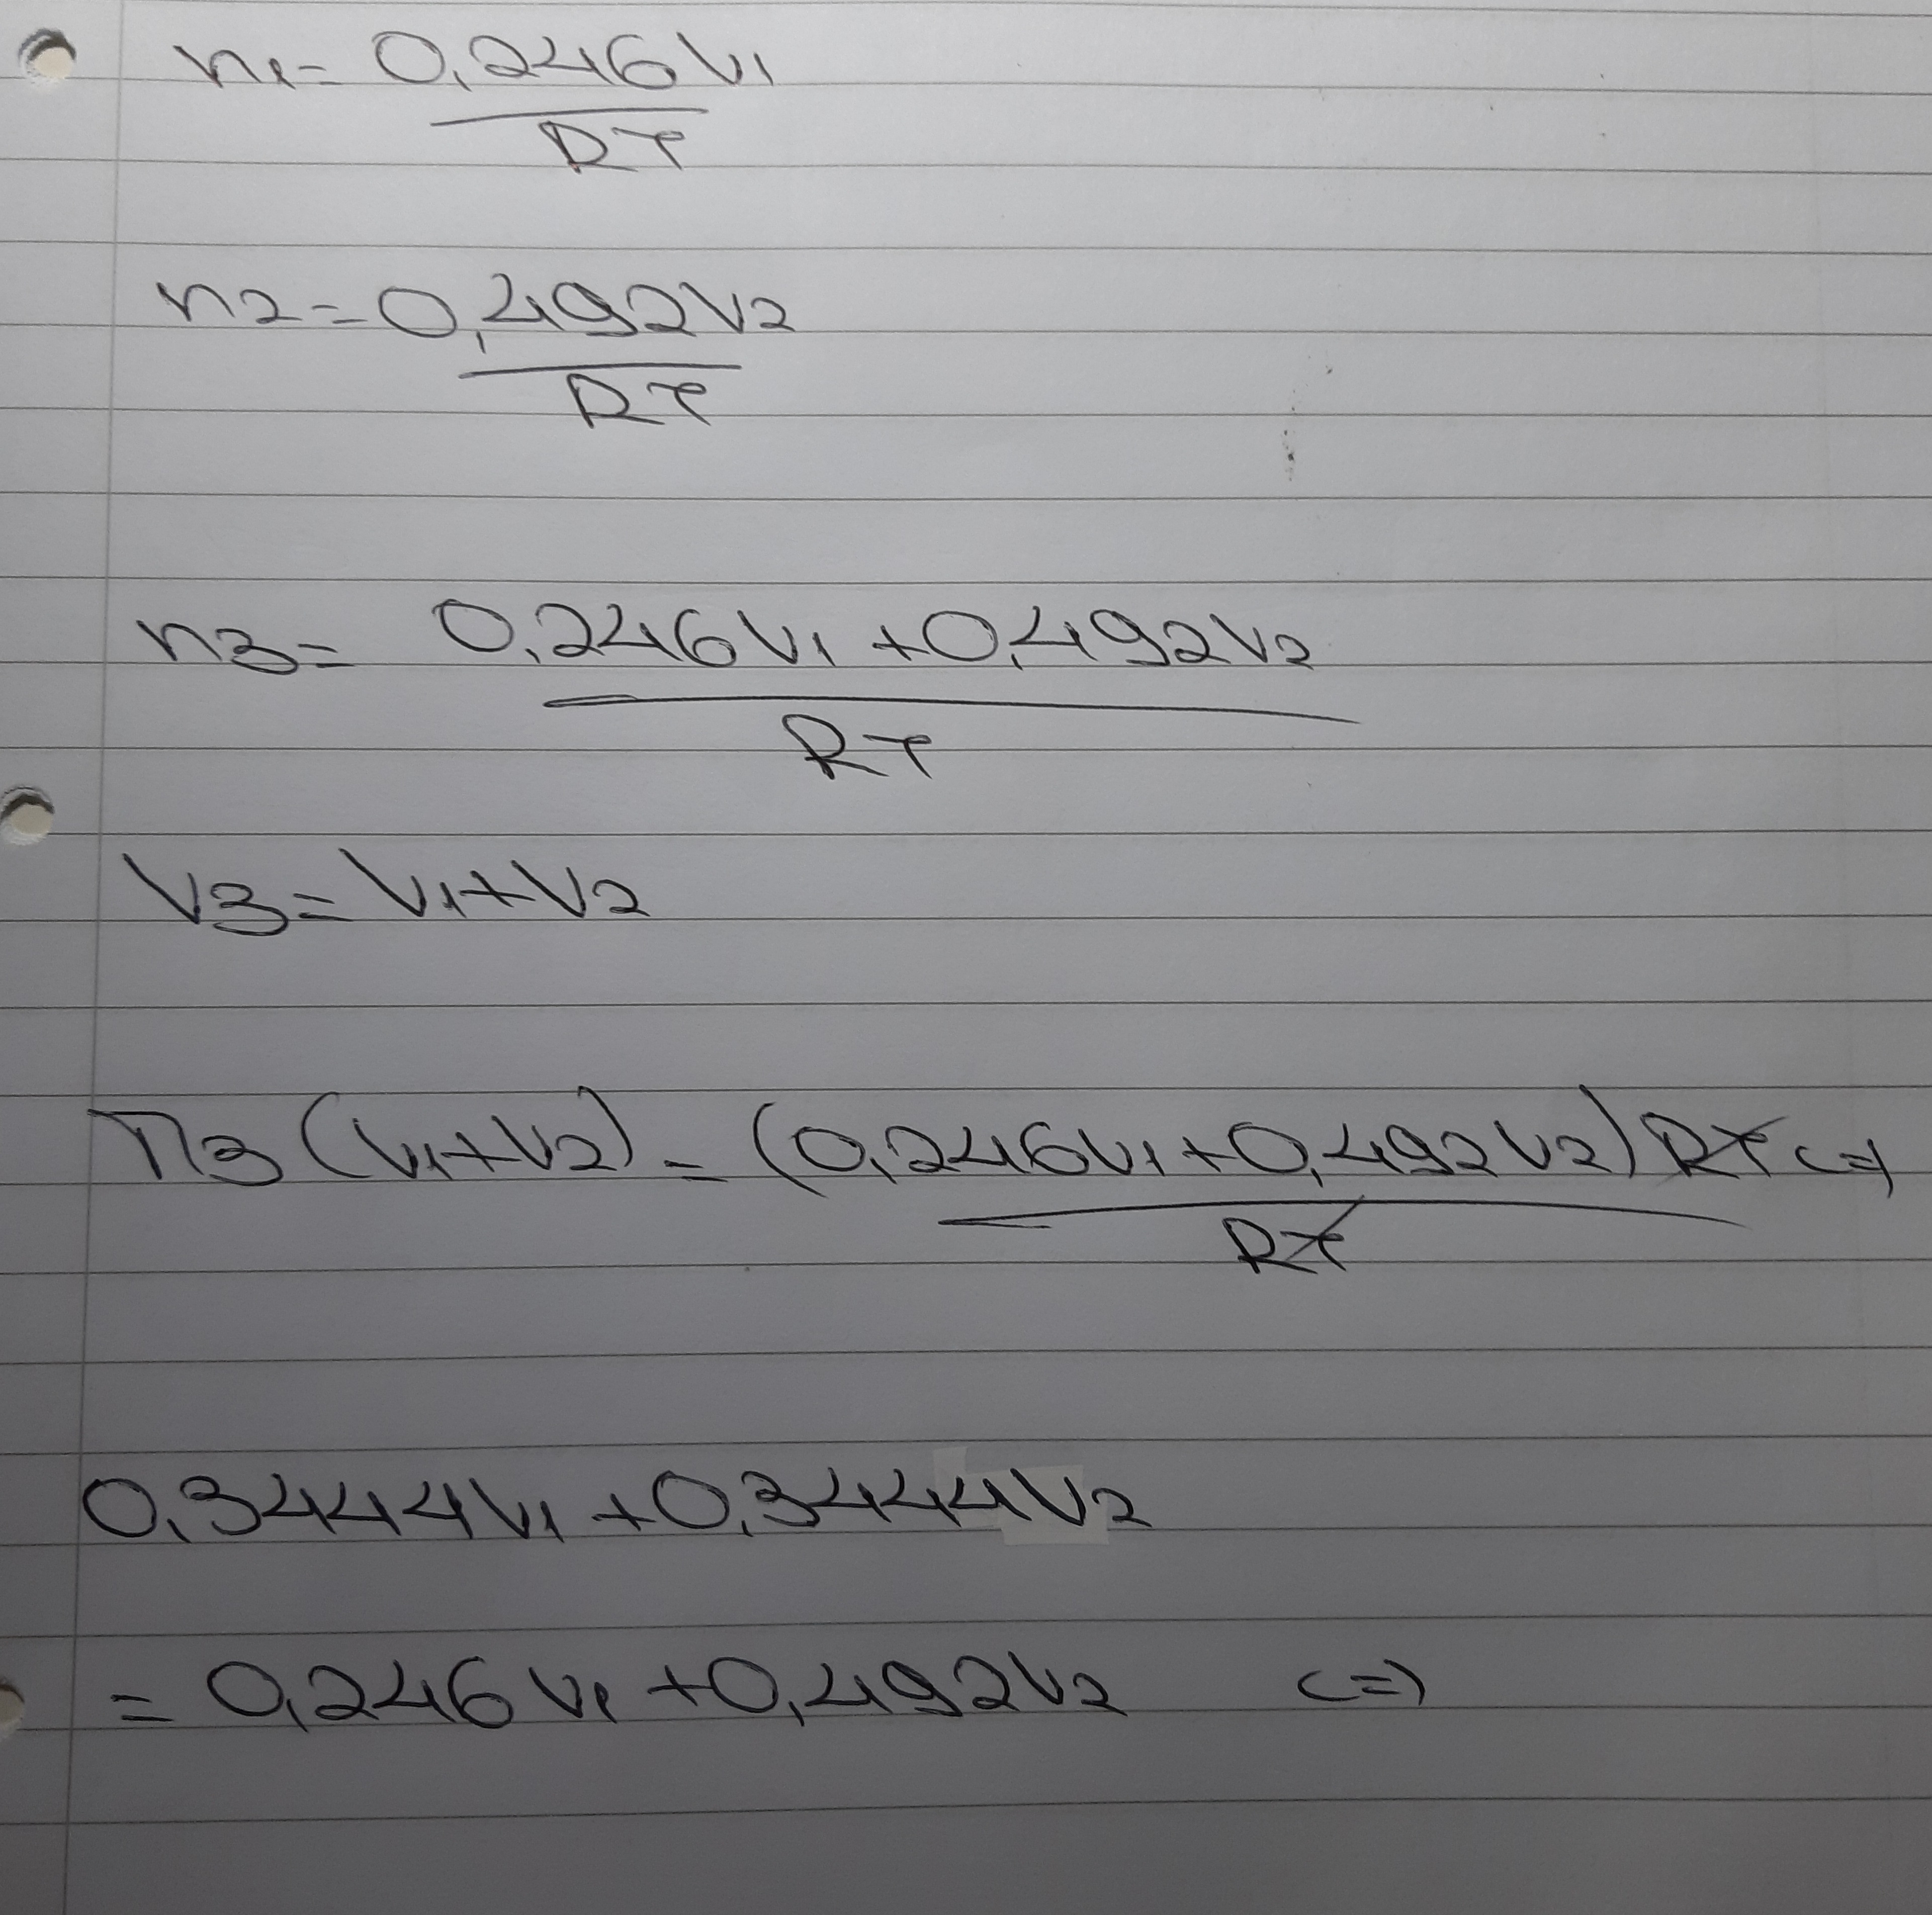 n1 = 0,246V1
RT
n2 = 0,492V2
RT
n3 = 0,246V1 + 0,492V2
RT
V3 = V1 + V2
Π3 (V1 + V2) = (0,246V1 + 0,492V2) RT <=>
RT
0,3444V1 + 0,3444V2
= 0,246V1 + 0,492V2 <=>